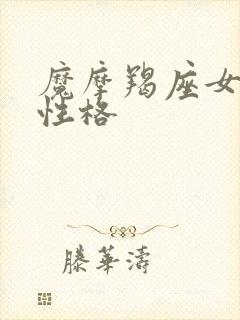 魔摩羯座女
性格
滕華濤